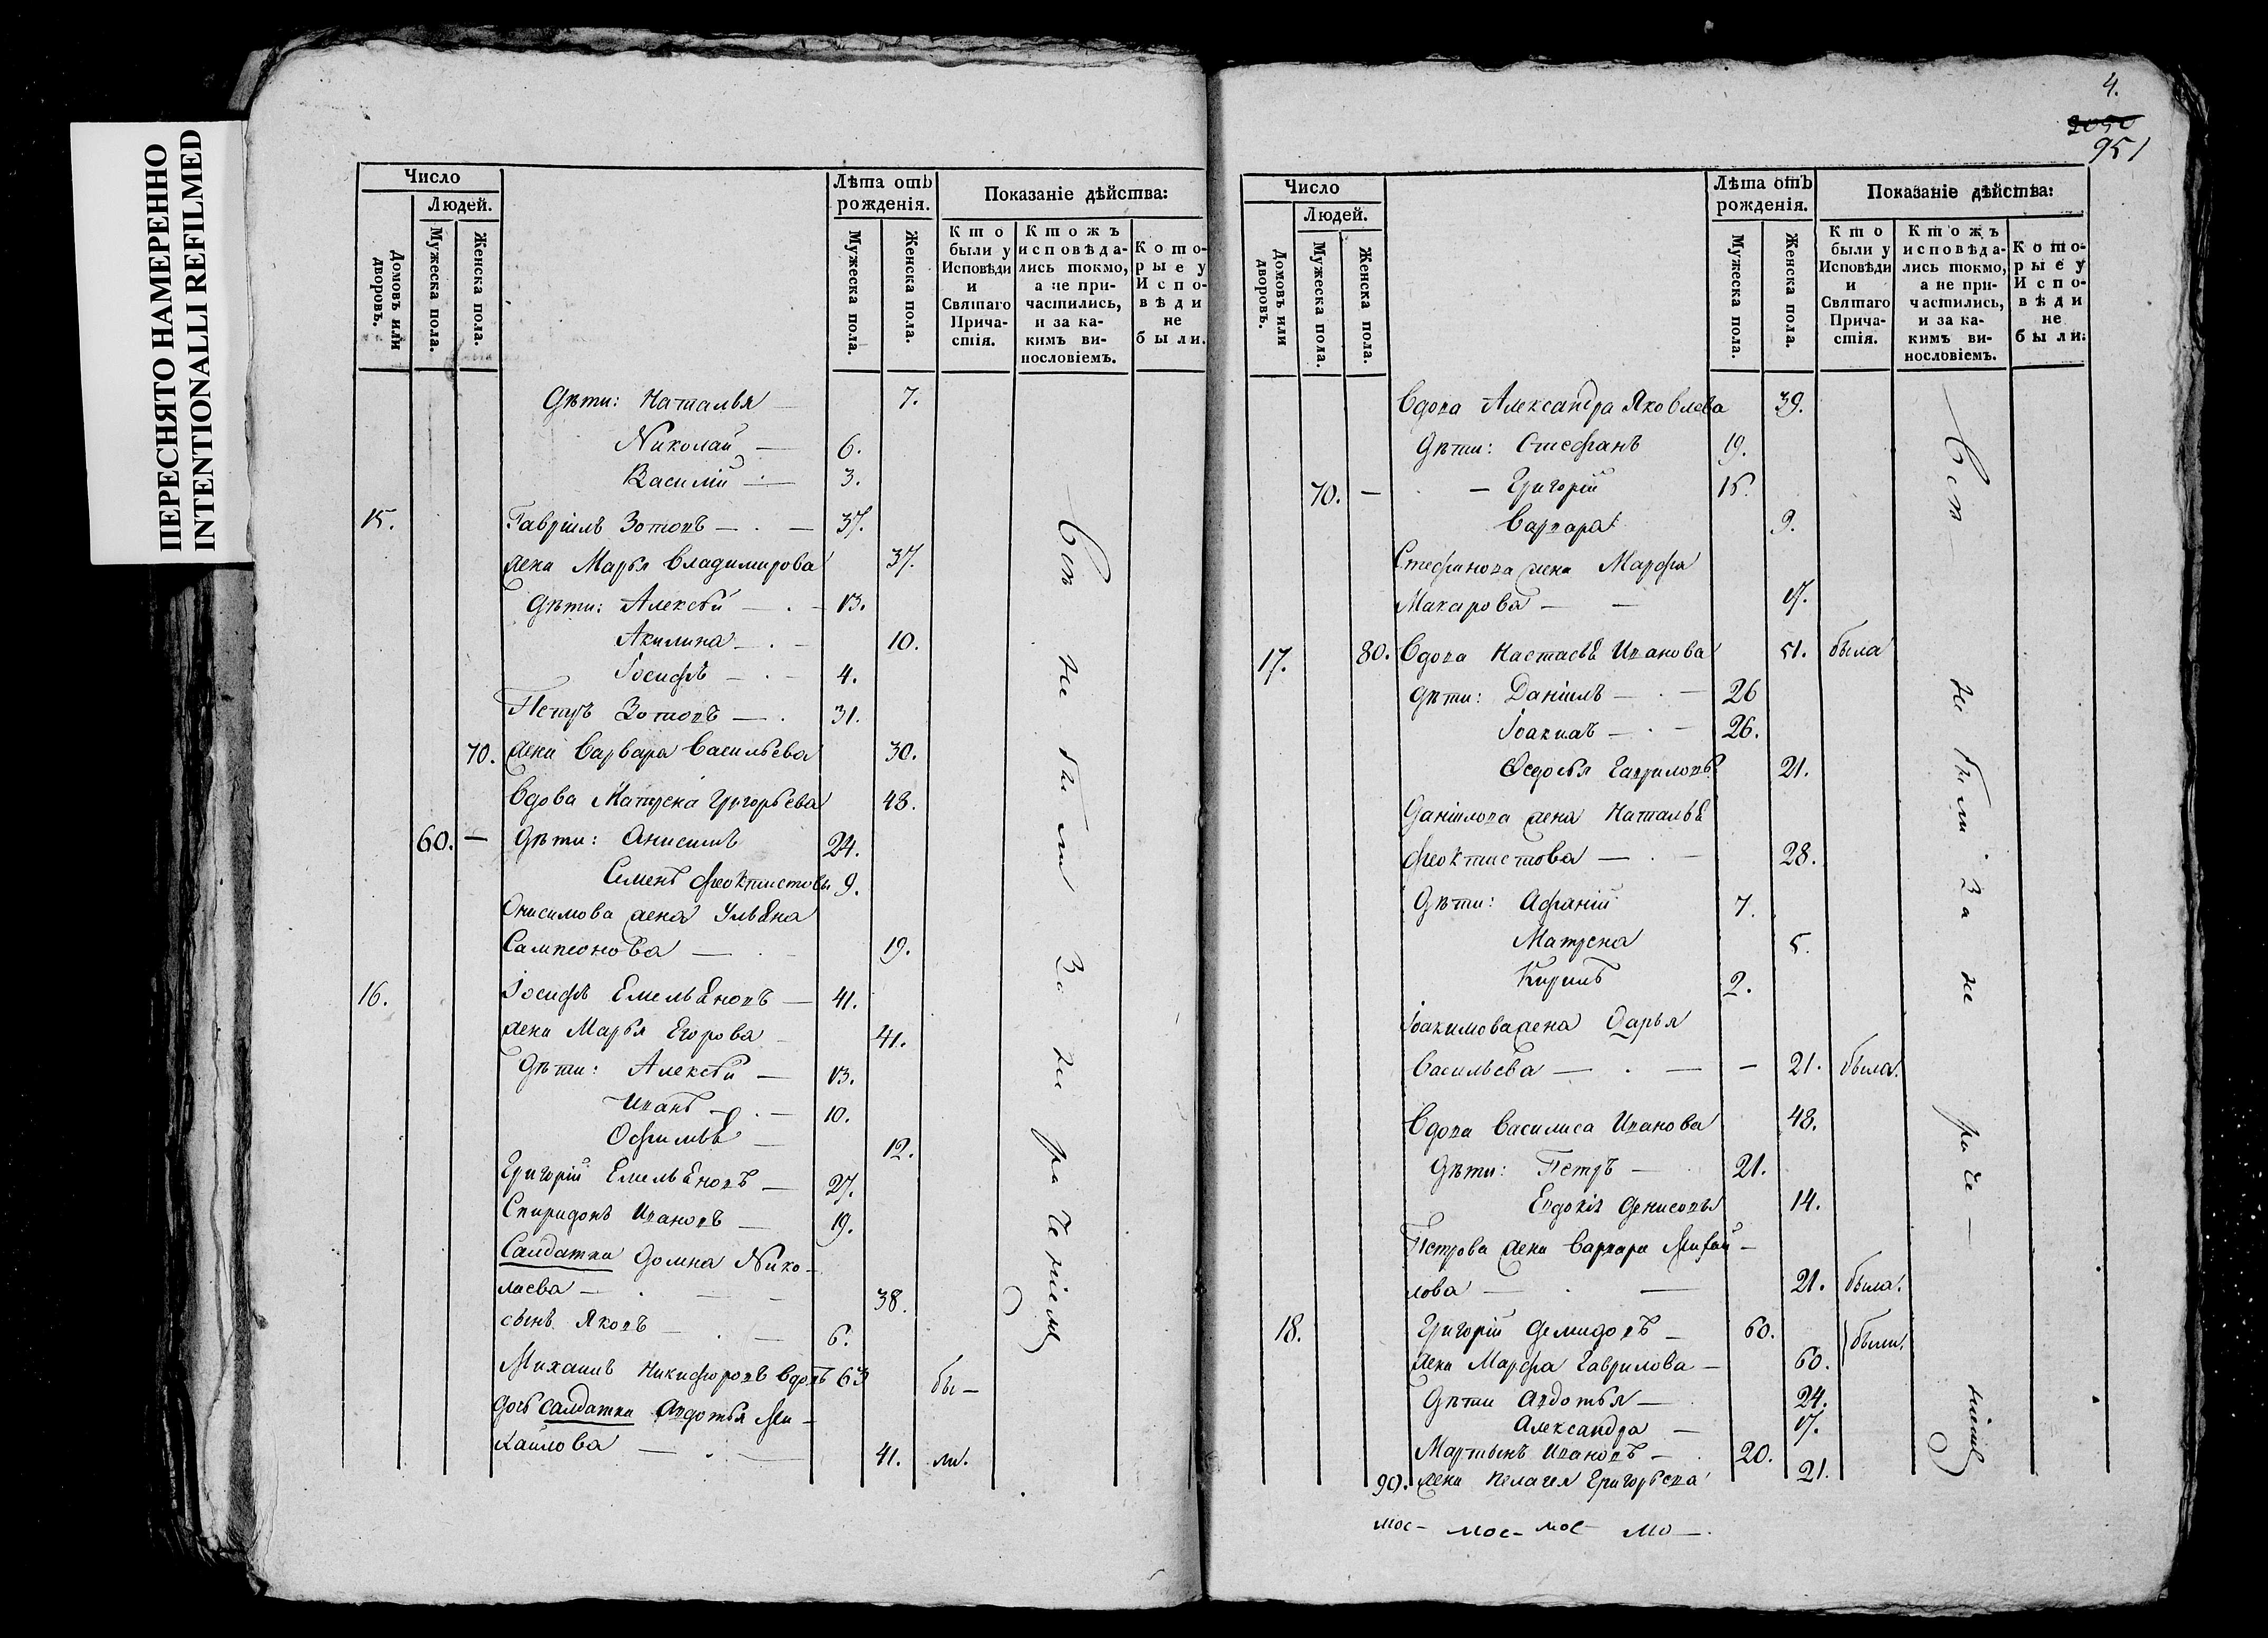 ПЕРЕСНЯТО НАМЕРЕННО
INTENTIONALLI REFILMED
Число
Людей.
Домовъ или дворовъ.
Мужеска пола.
Женска пола.
Лѣта отъ рожденія.
Мужеска пола.
Женска пола.
Показаніе дѣйства:
Кто были у Исповѣди и Святаго Причастія.
Ктожъ исповѣдались токмо, а не причастились, и за какимъ винословіемъ.
Которые у Исповѣди не были.
Дѣти: Наталья — 7.
Николай — 6.
Василій — 3.
15. Гавріилъ Зотовъ — 37.
жена Марья Владимирова 37.
Дѣти: Алексѣй — 13.
Акилина — 10.
Іосифъ — 4.
Петръ Зотовъ — 31.
70. жена Варвара Васильева 30.
Вдова Матрена Григорьева 48.
60. — Дѣти: Анисимъ 24.
Семенъ Феоктистовы 9.
Онисимова жена Ульяна
Сампсонова — 19.
16. Іосифъ Емельяновъ — 41.
жена Марья Егорова 41.
Дѣти: Алексѣй — 13.
Иванъ — 10.
Офимья — 12.
Григорій Емельяновъ — 27.
Спиридонъ Ивановъ — 19.
Салдатка Домна Нико-
лаева — 38.
сынъ Яковъ — 6.
Михаилъ Никифоровъ вдовъ 63 бы-
дочь салдатка Авдотья Ми-
хайлова — 41. ли.
Всѣ не были за нерачениемъ
4.
951
Число
Людей.
Домовъ или дворовъ.
Мужеска пола.
Женска пола.
Лѣта отъ рожденія.
Мужеска пола.
Женска пола.
Показаніе дѣйства:
Кто были у Исповѣди и Святаго Причастія.
Ктожъ исповѣдались токмо, а не причастились, и за какимъ винословіемъ.
Которые у Исповѣди не были.
Вдова Александра Яковлева 39.
Дѣти: Стефанъ 19.
70. — Григорій 15.
Варвара 9.
Стефанова жена Марфа
Макарова — 17.
17. 80. Вдова Настасья Иванова 51. была
Дѣти: Даніилъ — 26
Іоакимъ — 26.
Федосья Гавриловы 21.
Даніилова жена Наталья
Феоктистова — 28.
Дѣти: Афаній 7.
Матрена 5.
Кирилъ 2.
Іоакимова жена Дарья
Васильева — 21. была.
Вдова Василиса Иванова 48.
Дѣти: Петръ — 21.
Евдокія Денисовы 14.
Петрова жена Варвара Михай-
лова — 21. была.
18. Григорій Демидовъ — 60. были.
жена Марфа Гаврилова — 60.
Дѣти Авдотья — 24.
Александра — 17.
Мартынъ Ивановъ — 20.
90. жена Пелагея Григорьева 21.
Всѣ не были за нерачениемъ
мос- мос- мос- мо-